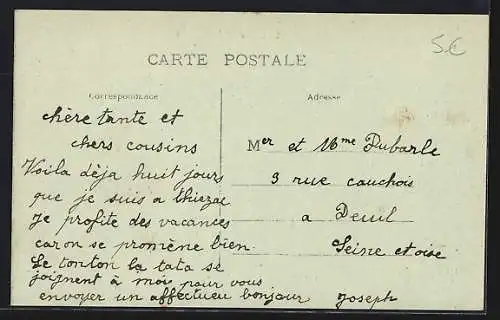 S.C
CARTE POSTALE
Correspondance
Adresse
chère tante et
chers cousins
Voila dèja huit jours
que je suis a thiezac
Je profite des vacances
car on se promène bien
Le tonton la tata se
joignent à moi pour vous
envoyer un affectueu bonjour Joseph
Mer et Mme Dubarle
3 rue cauchois
a Deuil
Seine et oise